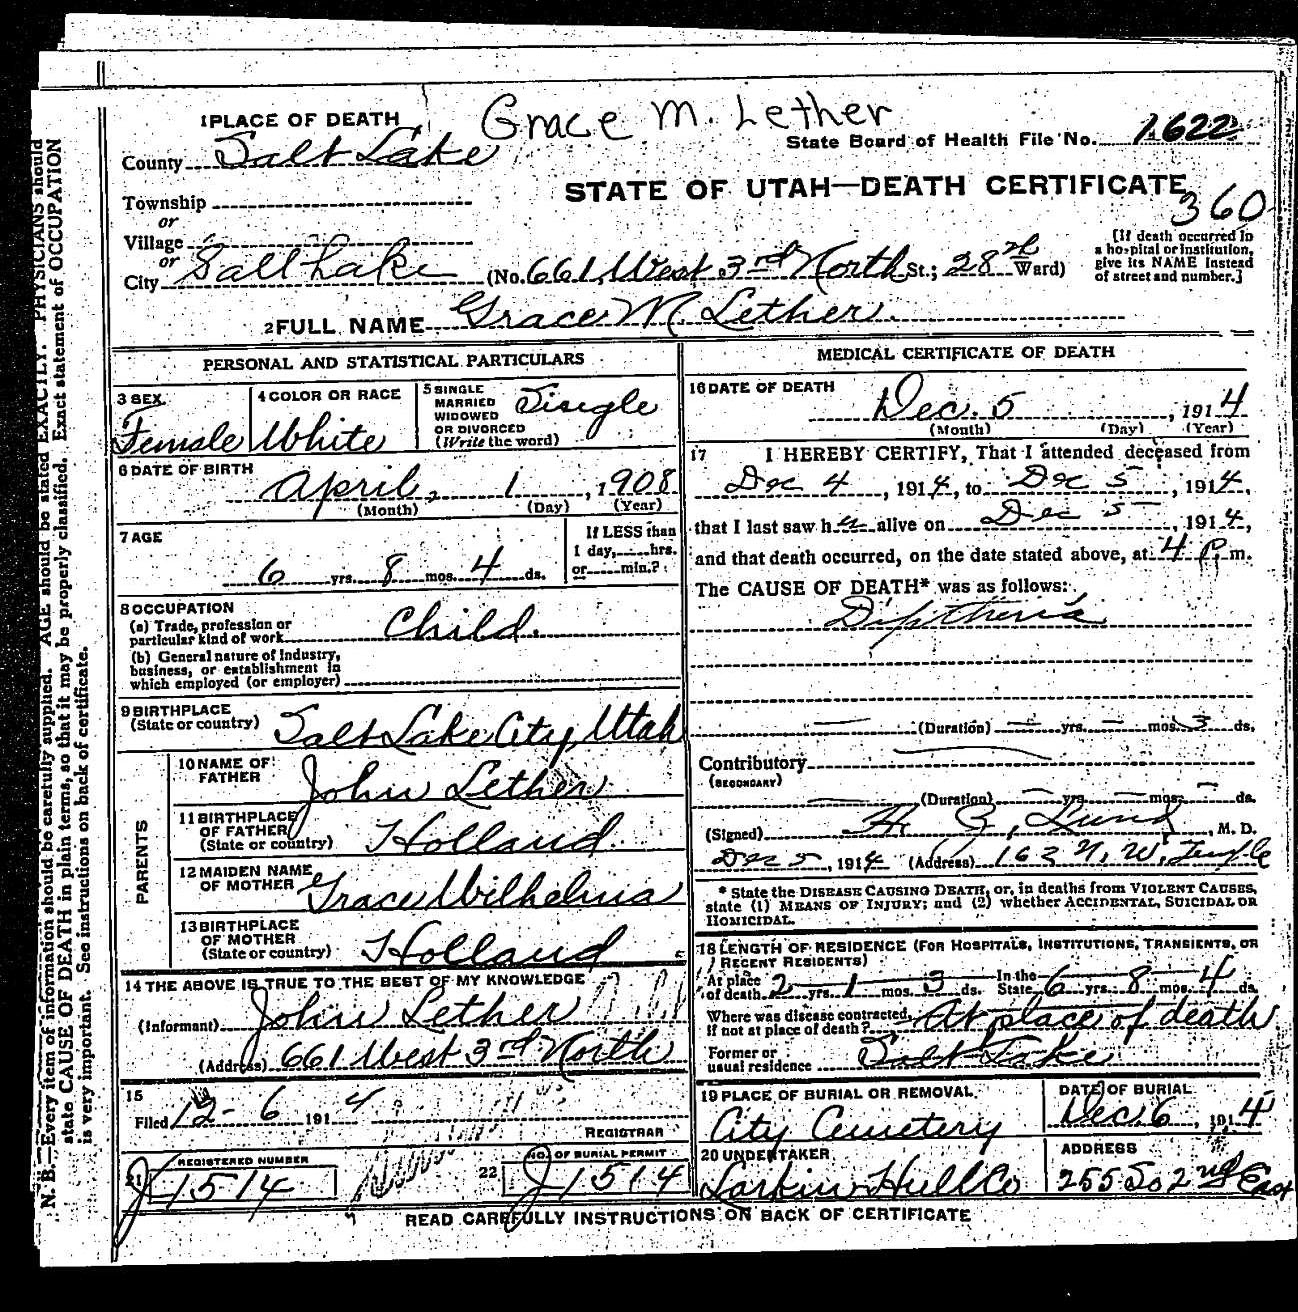 Grace M. Lether
1 PLACE OF DEATH
State Board of Health File No. 1622
County Salt Lake
STATE OF UTAH—DEATH CERTIFICATE
360
Township
or
Village
or
City Salt Lake (No. 661, West 3rd North St.; 28th Ward)
[If death occurred in
a hospital or institution,
give its NAME instead
of street and number.]
2 FULL NAME Grace M. Lether.
PERSONAL AND STATISTICAL PARTICULARS
3 SEX
Female
4 COLOR OR RACE
White
5 SINGLE
MARRIED
WIDOWED
OR DIVORCED
(Write the word)
Single
6 DATE OF BIRTH
April, 1, 1908
(Month) (Day) (Year)
7 AGE
6 yrs. 8 mos. 4 ds.
If LESS than
1 day, hrs.
or min.?
8 OCCUPATION
(a) Trade, profession or
particular kind of work Child.
(b) General nature of Industry,
business, or establishment in
which employed (or employer)
9 BIRTHPLACE
(State or country) Salt Lake City, Utah
PARENTS
10 NAME OF
FATHER John Lether
11 BIRTHPLACE
OF FATHER
(State or country) Holland
12 MAIDEN NAME
OF MOTHER Grace Wilhelmina
13 BIRTHPLACE
OF MOTHER
(State or country) Holland
14 THE ABOVE IS TRUE TO THE BEST OF MY KNOWLEDGE
(Informant) John Lether
(Address) 661 West 3rd North
15
Filed 12-6 1914
REGISTRAR
21 REGISTERED NUMBER
J1514
22 NO. OF BURIAL PERMIT
J1514
MEDICAL CERTIFICATE OF DEATH
16 DATE OF DEATH
Dec. 5, 1914
(Month) (Day) (Year)
17 I HEREBY CERTIFY, That I attended deceased from
Dec 4, 1914, to Dec 5, 1914,
that I last saw her alive on Dec 5, 1914,
and that death occurred, on the date stated above, at 4 P. m.
The CAUSE OF DEATH* was as follows:
Diptheria
(Duration) yrs. mos. 3 ds.
Contributory
(SECONDARY)
(Duration) yrs. mos. ds.
(Signed) Lund, M. D.
Dec 5, 1914 (Address) 163 N. W. Temple
* State the DISEASE CAUSING DEATH, or, in deaths from VIOLENT CAUSES,
state (1) MEANS OF INJURY; and (2) whether ACCIDENTAL, SUICIDAL OR
HOMICIDAL.
18 LENGTH OF RESIDENCE (FOR HOSPITALS, INSTITUTIONS, TRANSIENTS, OR
RECENT RESIDENTS)
At place
of death 2 yrs. 1 mos. 3 ds. In the
State 6 yrs. 8 mos. 4 ds.
Where was disease contracted,
if not at place of death? At place of death
Former or
usual residence Salt Lake
19 PLACE OF BURIAL OR REMOVAL
City Cemetery
DATE OF BURIAL
Dec. 6, 1914
20 UNDERTAKER
Larkin Hull Co
ADDRESS
255 So 2nd East
READ CAREFULLY INSTRUCTIONS ON BACK OF CERTIFICATE
N. B.—Every item of information should be carefully supplied. AGE should be stated EXACTLY. PHYSICIANS should
state CAUSE OF DEATH in plain terms, so that it may be properly classified. Exact statement of OCCUPATION
is very important. See instructions on back of certificate.